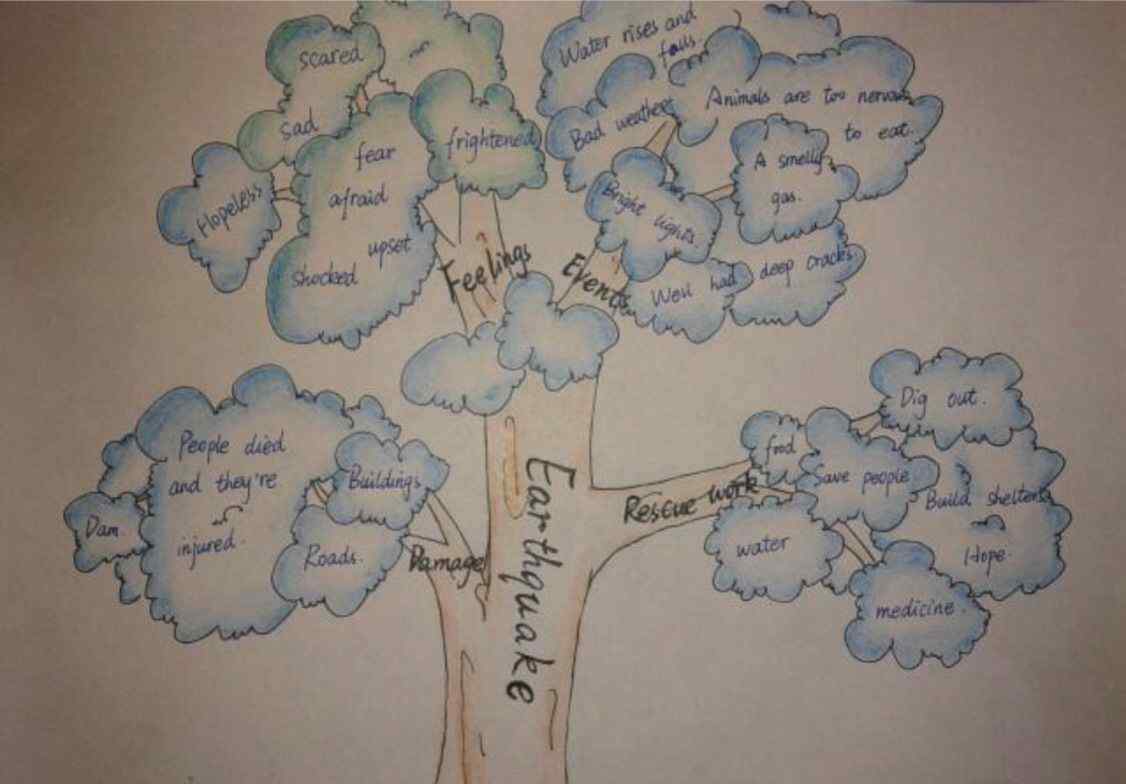 scared
sad
Hopeless
fear
afraid
upset
shocked
frightened
Feelings
Water rises and
falls.
Bad weather
Animals are too nervous
to eat.
A smelly
gas.
Bright lights.
Well had deep cracks.
Events
People died
and they're
injured.
Buildings
Dam.
Roads.
Damage
Earthquake
Rescue work
food
Save people
Dig out.
Build shelters
Hope.
water
medicine.